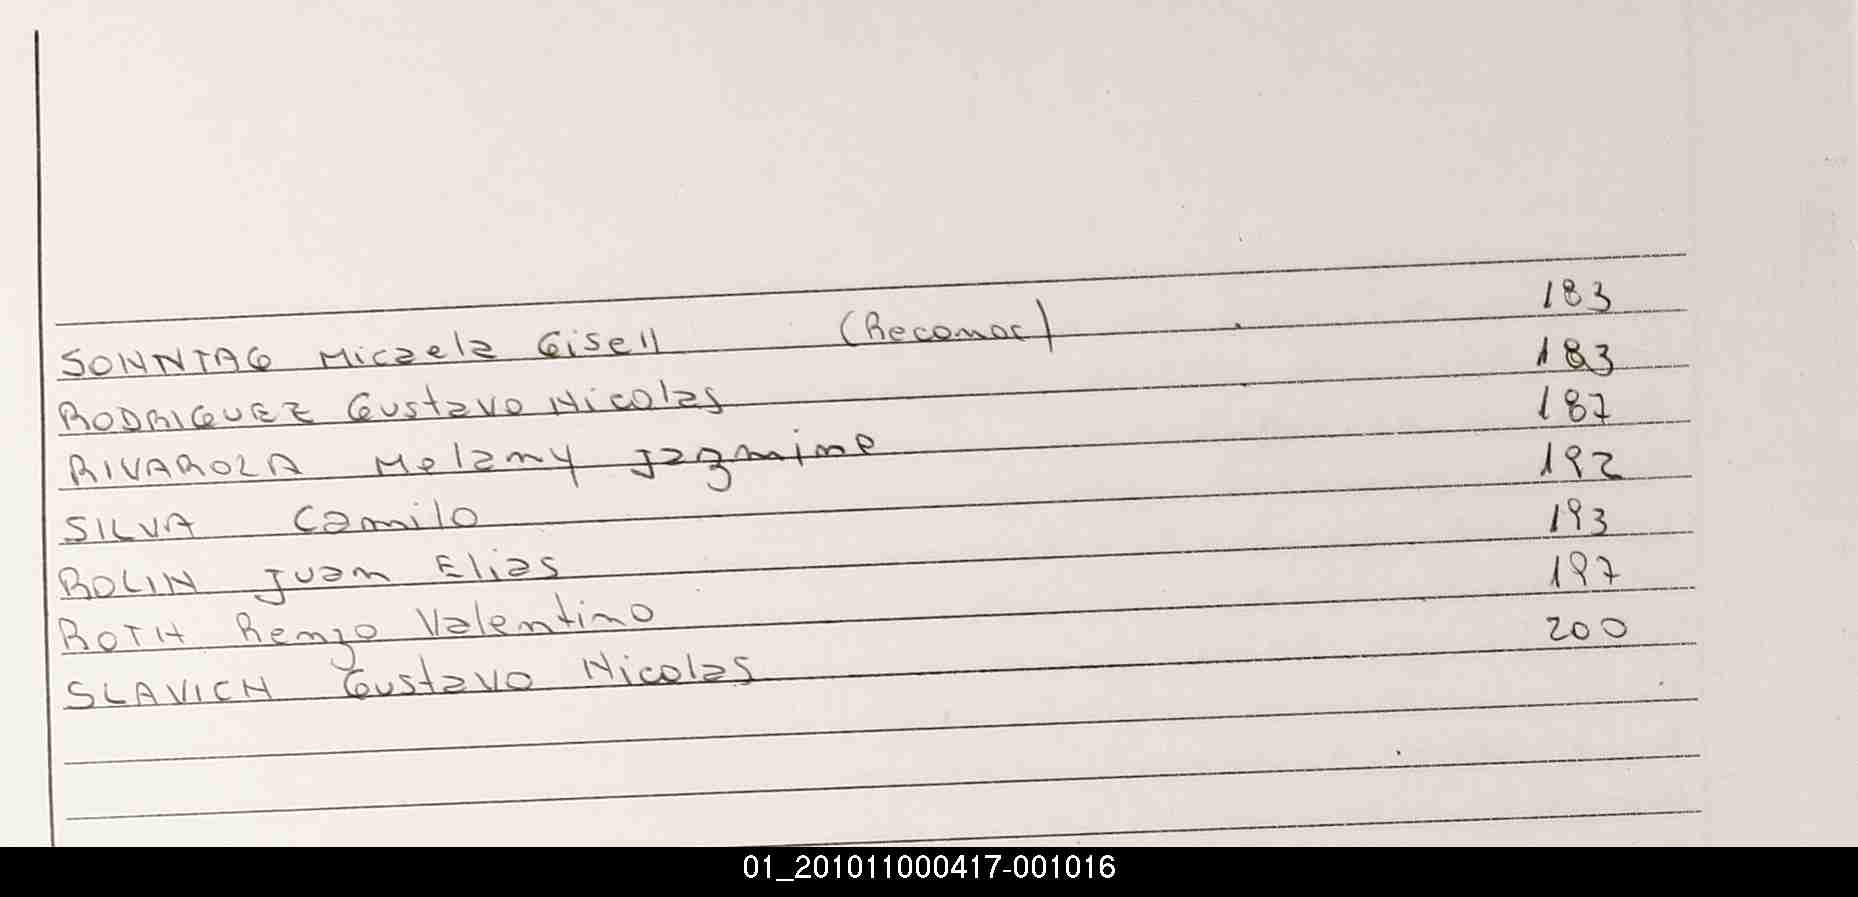 SONNTAG Micaela Gisell (Reconoc) 183
RODRIGUEZ Gustavo Nicolas 183
RIVAROLA Melany Jazmine 187
SILVA Camilo 192
ROLIN Juan Elias 193
ROTH Renzo Valentino 197
SLAVICH Gustavo Nicolas 200
01_201011000417-001016